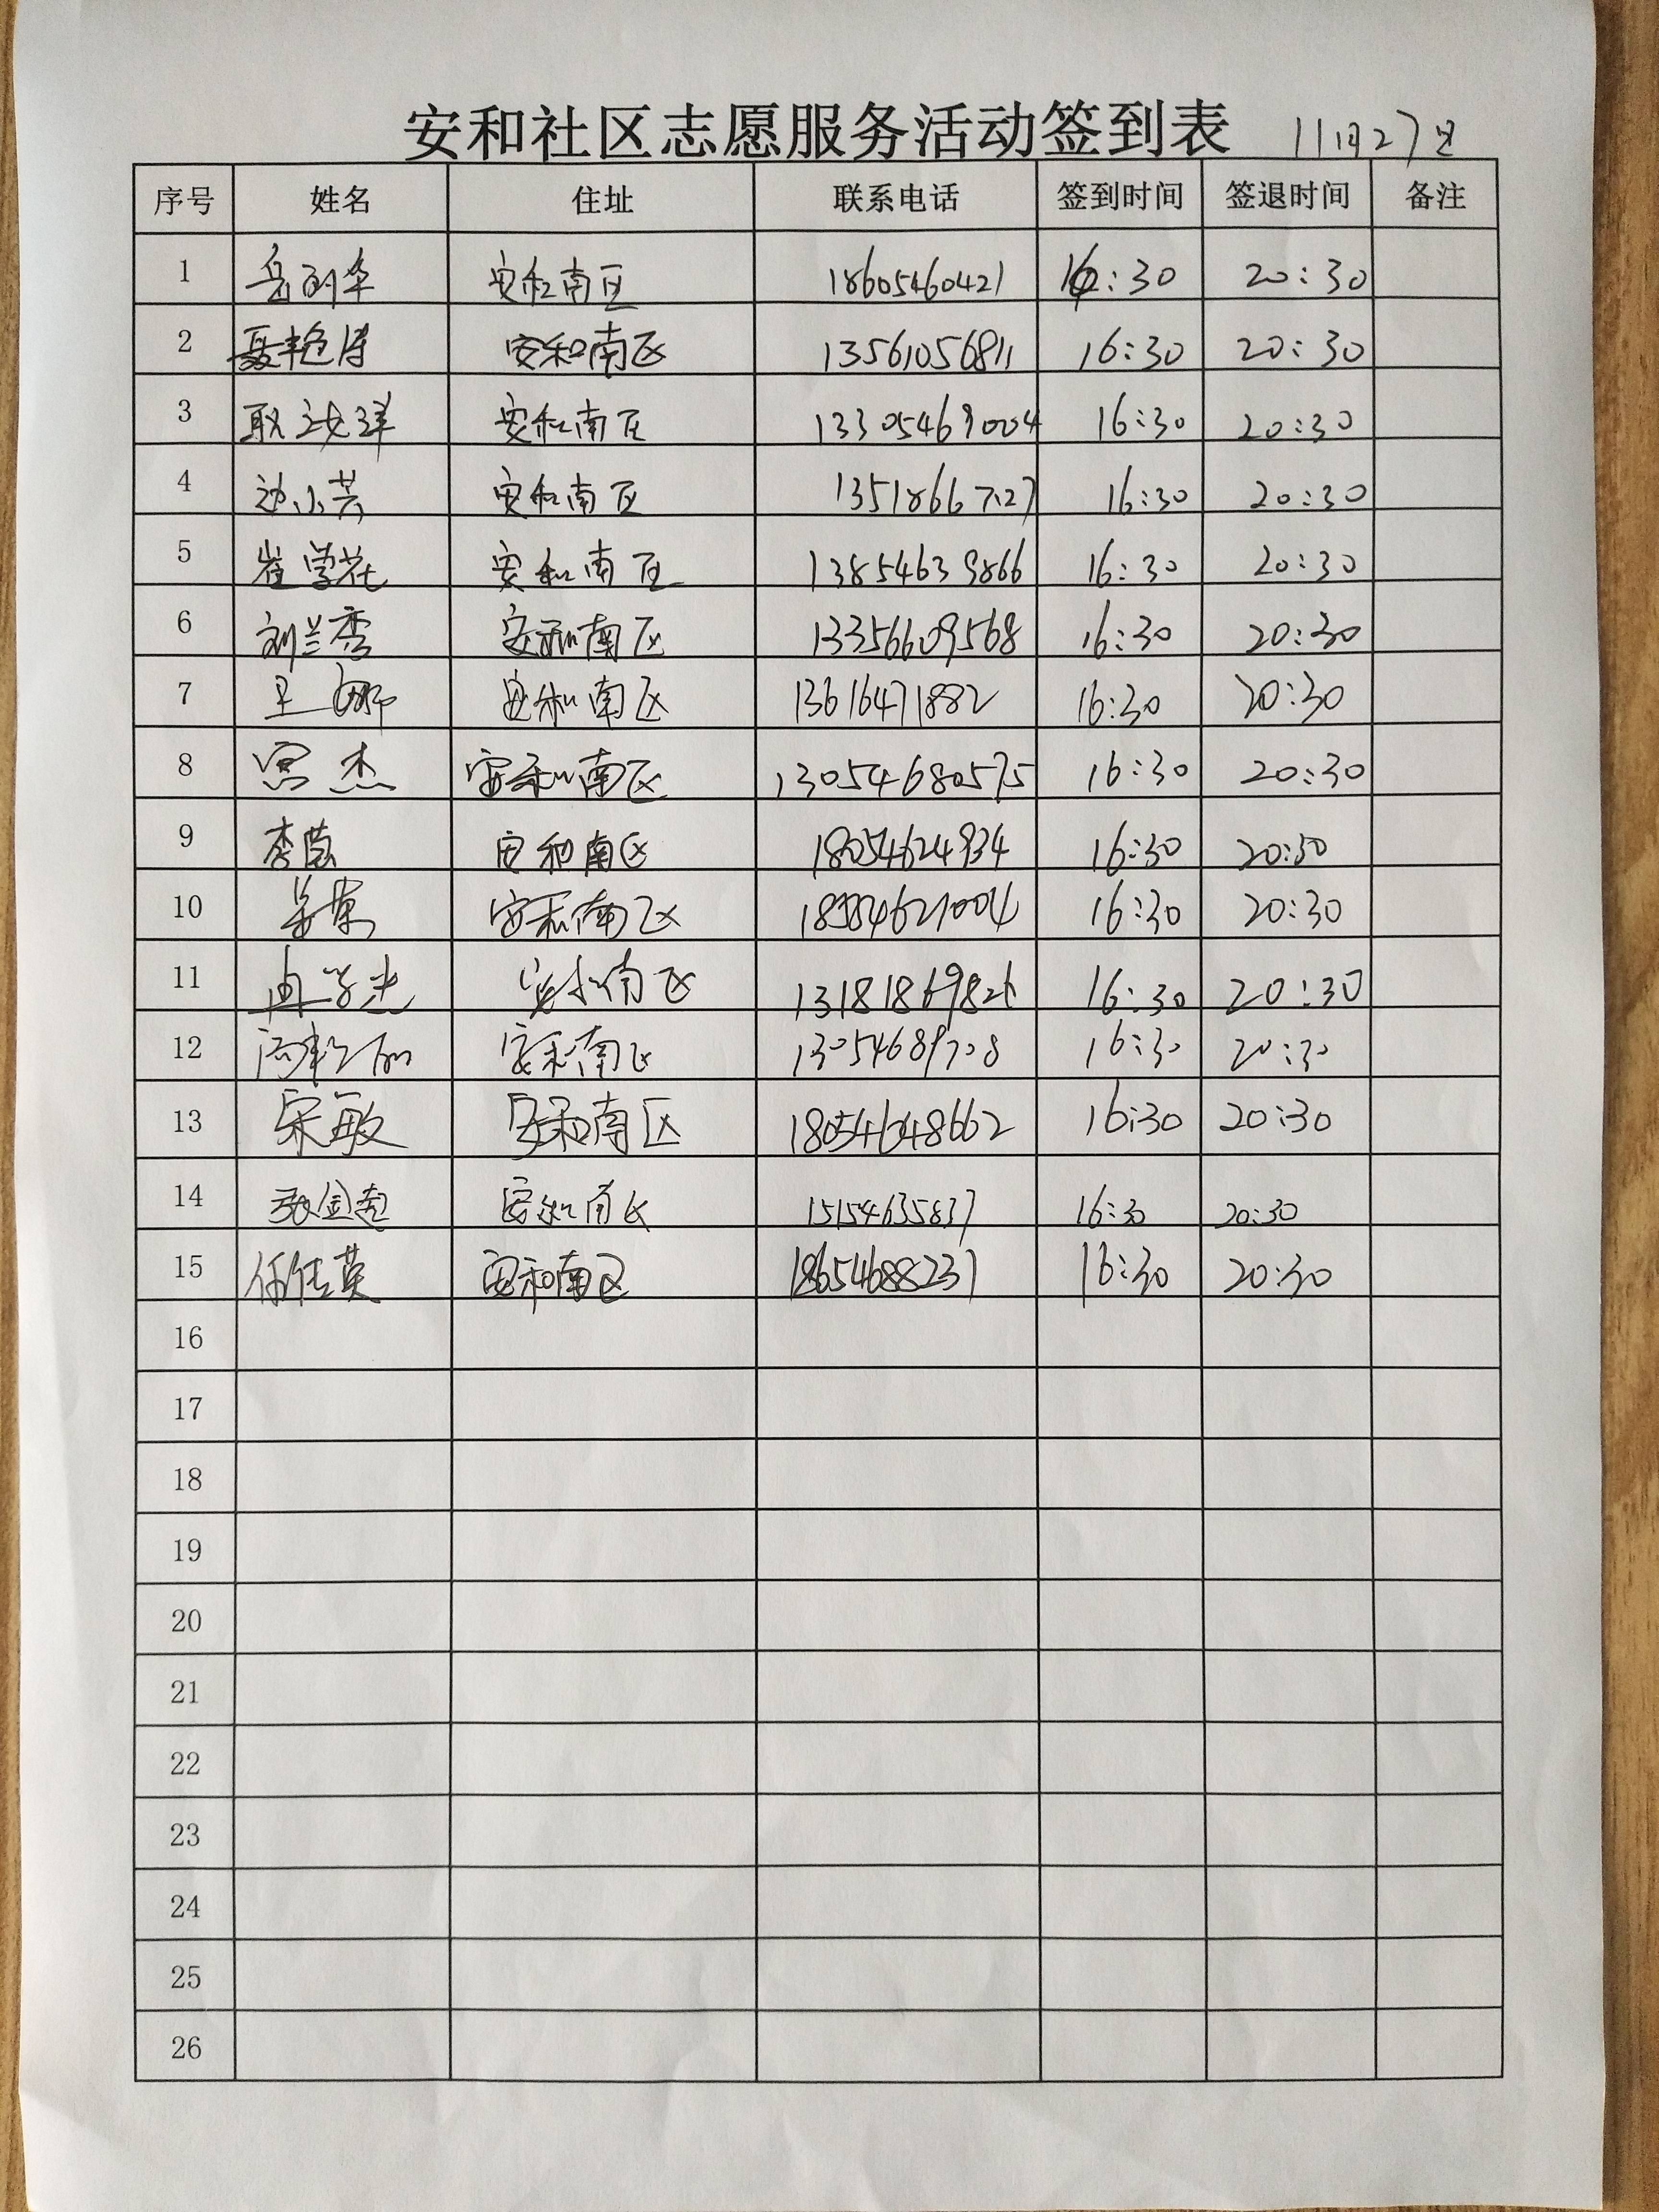 安和社区志愿服务活动签到表 11月27日
序号 姓名 住址 联系电话 签到时间 签退时间 备注
1 岳 华 安和南区 18605460421 16:30 20:30
2 聂艳 安和南区 13561056811 16:30 20:30
3 耿 安和南区 13305469004 16:30 20:30
4 边小芳 安和南区 13518667127 16:30 20:30
5 崔学花 安和南区 13854639866 16:30 20:30
6 刘兰香 安和南区 13356609568 16:30 20:30
7 王娜 安和南区 13616471882 16:30 20:30
8 杰 安和南区 13054680575 16:30 20:30
9 李莹 安和南区 18054624934 16:30 20:30
10 安和南区 16:30 20:30
11 安和南区 13181869826 16:30 20:30
12 安和南区 13054689708 16:30 20:30
13 宋敏 安和南区 18054648662 16:30 20:30
14 张金 安和南区 15154635837 16:30 20:30
15 任佳英 安和南区 18654688237 16:30 20:30
16
17
18
19
20
21
22
23
24
25
26